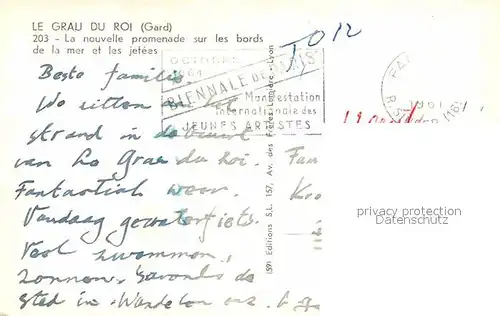 LE GRAU DU ROI (Gard)
203 - La nouvelle promenade sur les bords
de la mer et les jetées
T 0,12
OCTOBRE
1961
BIENNALE DE PARIS
Manifestation
Internationale des
JEUNES ARTISTES
1961
Beste familie.
We zitten aan het
strand in de buurt
van Le Grau du Roi.
Fantastisch weer.
Vandaag gewaterfietst.
Veel zwemmen,
zonnen. 's avonds de
stad in. Wandelen enz.
1591 Editions S.L. 157, Av. des Frères Lumière - Lyon
Fam
privacy protection
Datenschutz